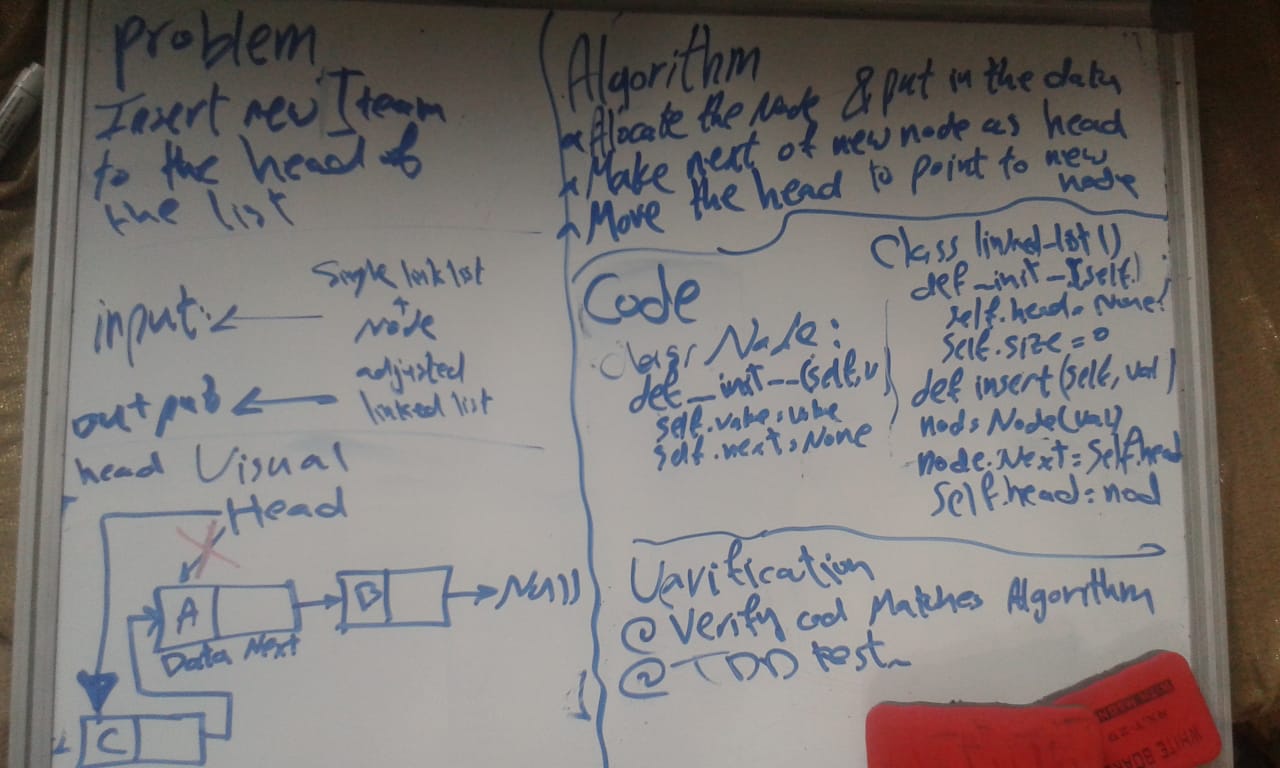 problem
Insert new Iteam
to the head of
the list
input:
Single link list
+
Node
output
adjusted
linked list
head Visual
Head
A
B
Null
Data Next
C
Algorithm
* Alocate the Node & put in the data
* Make next of new node as head
* Move the head to point to new
node
Code
class Node:
def __init__(self, v)
self.value = value
self.next = None
Class linked-list()
def _init_(self)
self.head = None
self.size = 0
def insert(self, val)
nod = Node(val)
node.Next = Self.head
Self.head = nod
Varification
@ Verify cod Matches Algorithm
@ TDD test
WHITE BOARD